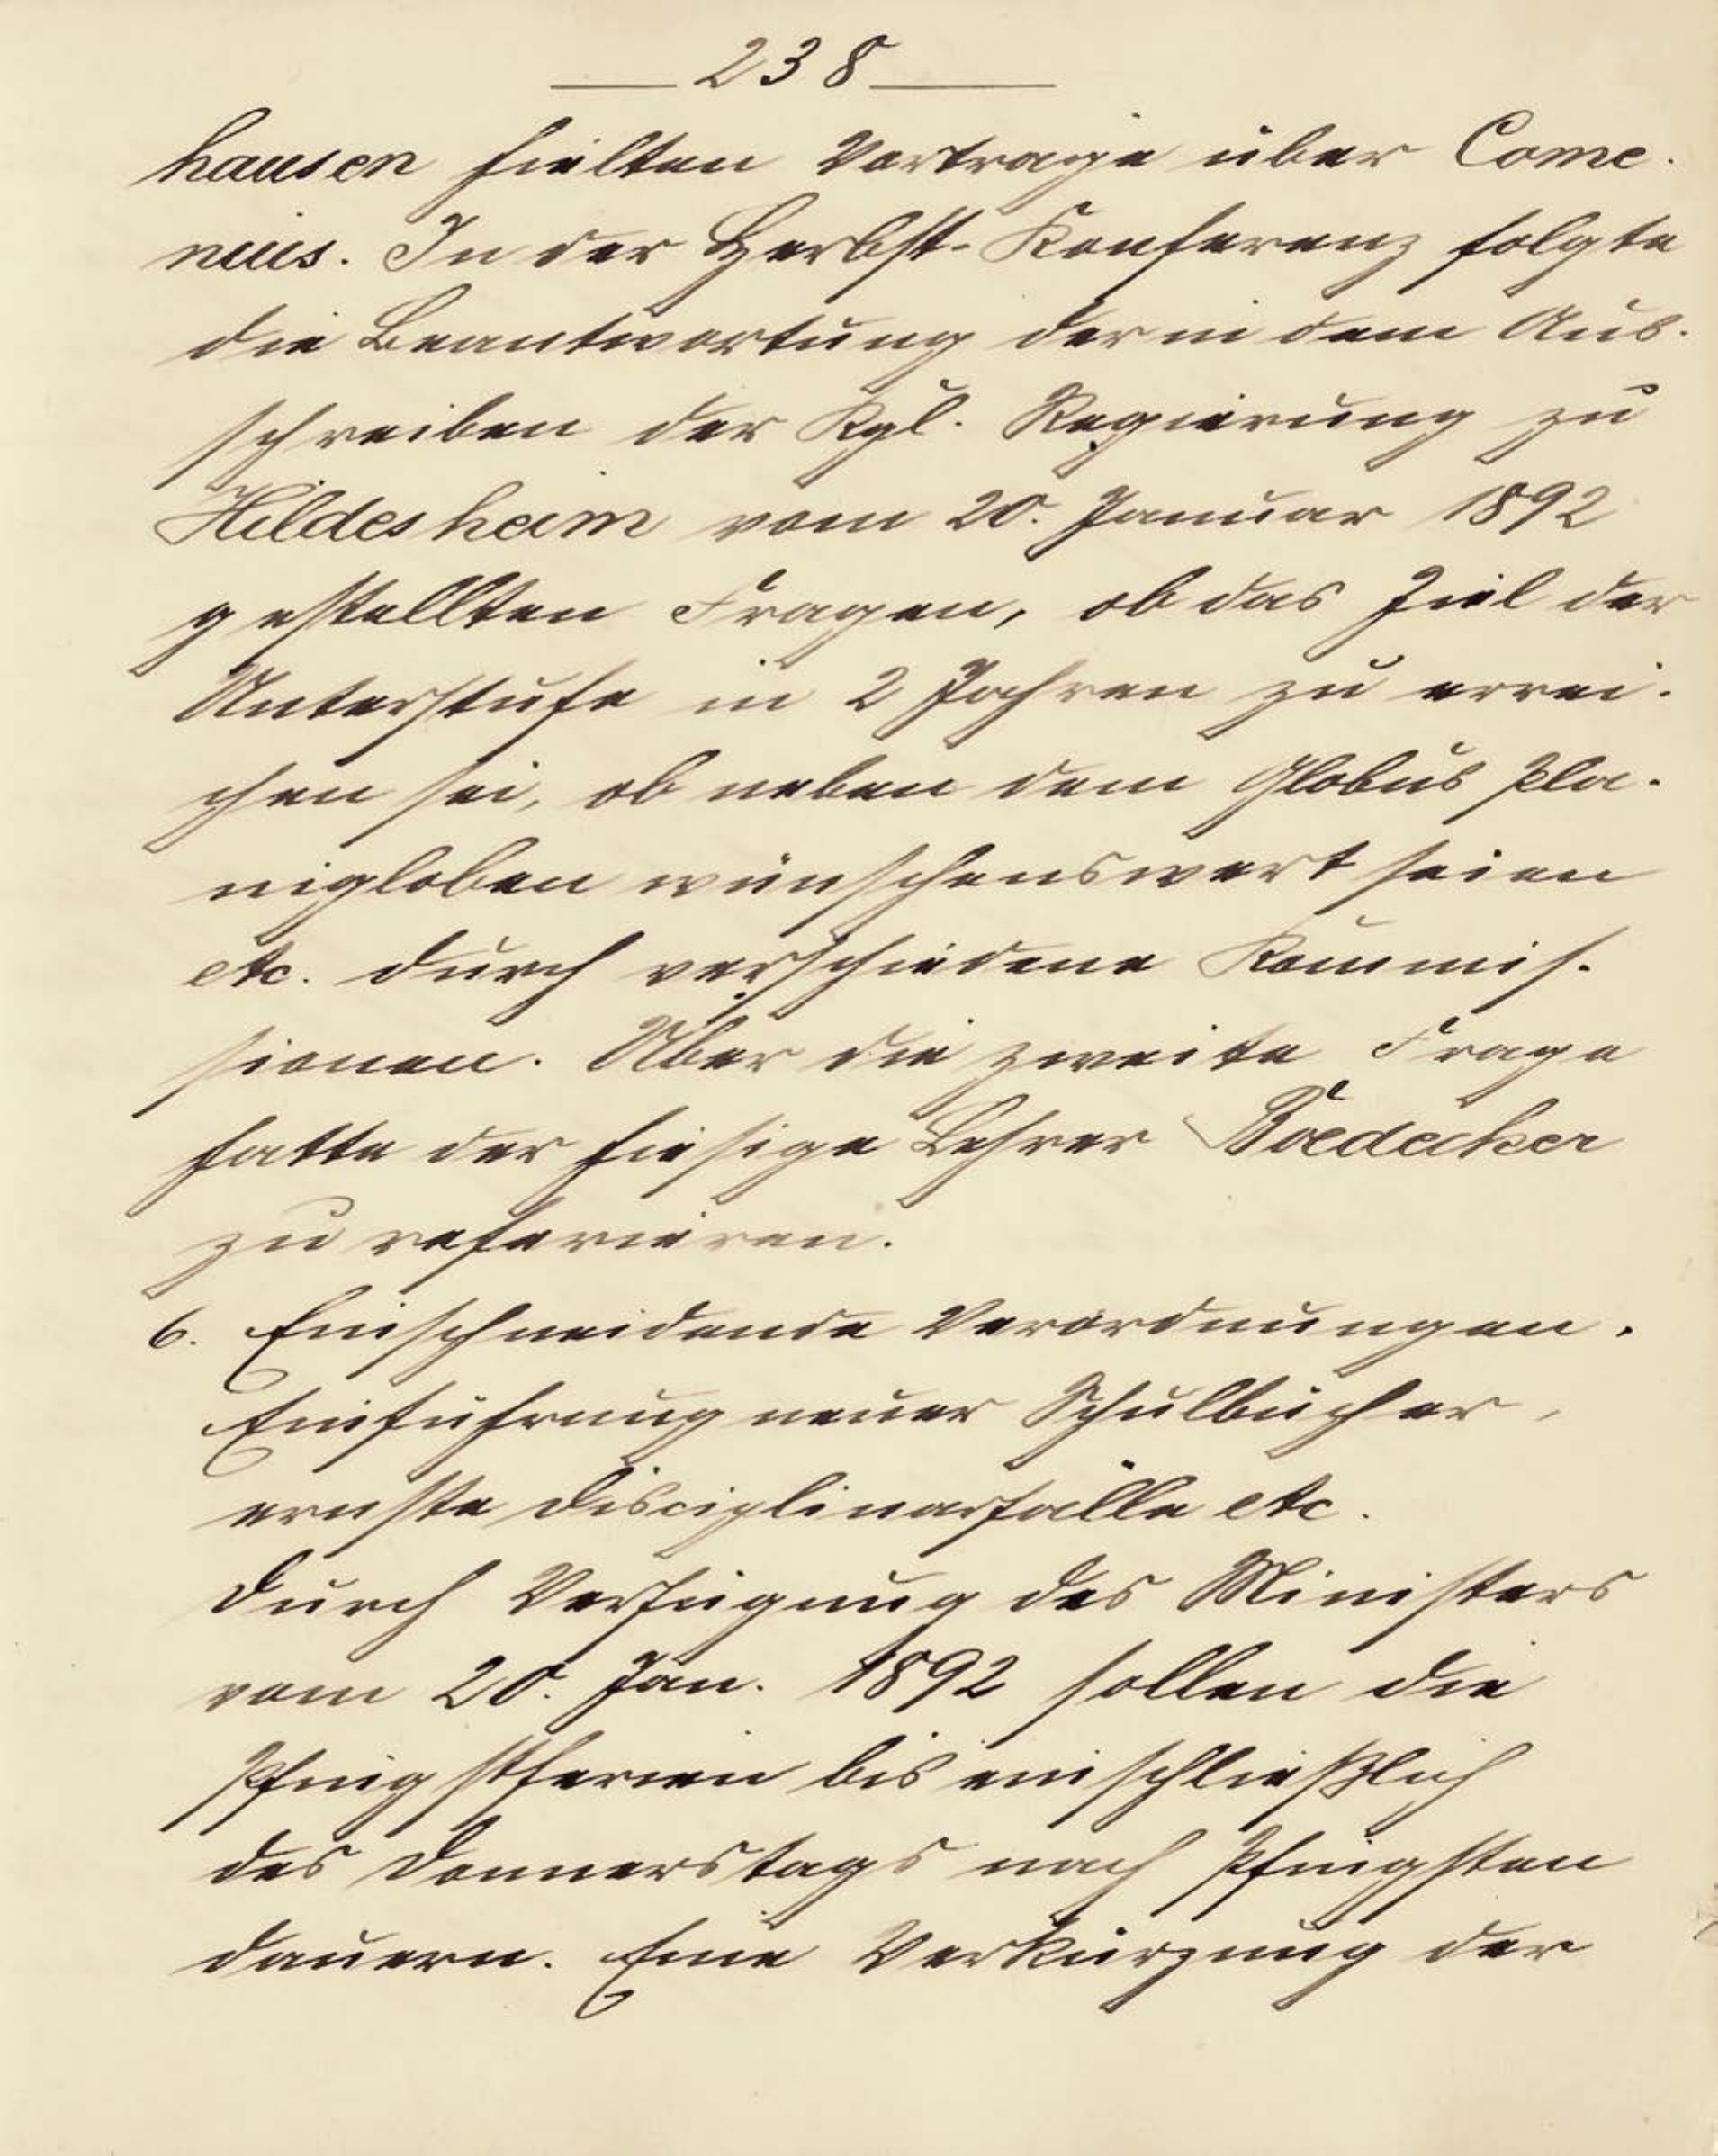 238
hausen hielten Vorträge über Come-
nius. In der Herbst-Konferenz folgte
die Beantwortung der in dem Aus-
schreiben der Kgl. Regierung zu
Hildesheim vom 20. Januar 1892
gestellten Fragen, ob das Ziel der
Unterstufe in 2 Jahren zu errei-
chen sei, ob neben dem Globus Pla-
nigloben wünschenswert seien
etc. durch verschiedene Kommis-
sionen. Über die zweite Frage
hatte der hiesige Lehrer Boedecker
zu referieren.
6. Einschneidende Verordnungen.
Einführung neuer Schulbücher,
ernste Disciplinarfälle etc.
Durch Verfügung des Ministers
vom 20. Jan. 1892 sollen die
Pfingstferien bis einschließlich
des Donnerstags nach Pfingsten
dauern. Eine Verkürzung der